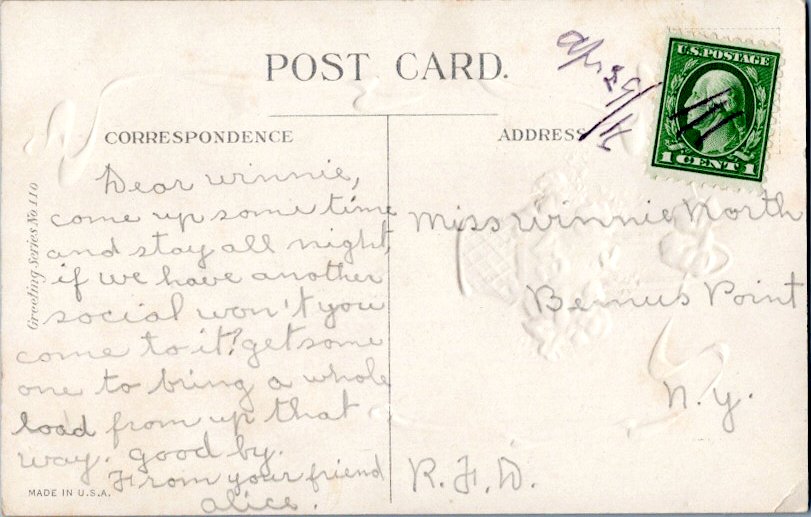 POST CARD.
U.S. POSTAGE
1 CENT 1
CORRESPONDENCE
Dear winnie,
come up some time
and stay all night,
if we have another
social won't you
come to it? get some
one to bring a whole
load from up that
way. good by.
From your friend
alice.
ADDRESS
Miss Winnie North
Bemus Point
N.Y.
R.F.D.
Greeting Series No 110
MADE IN U.S.A.